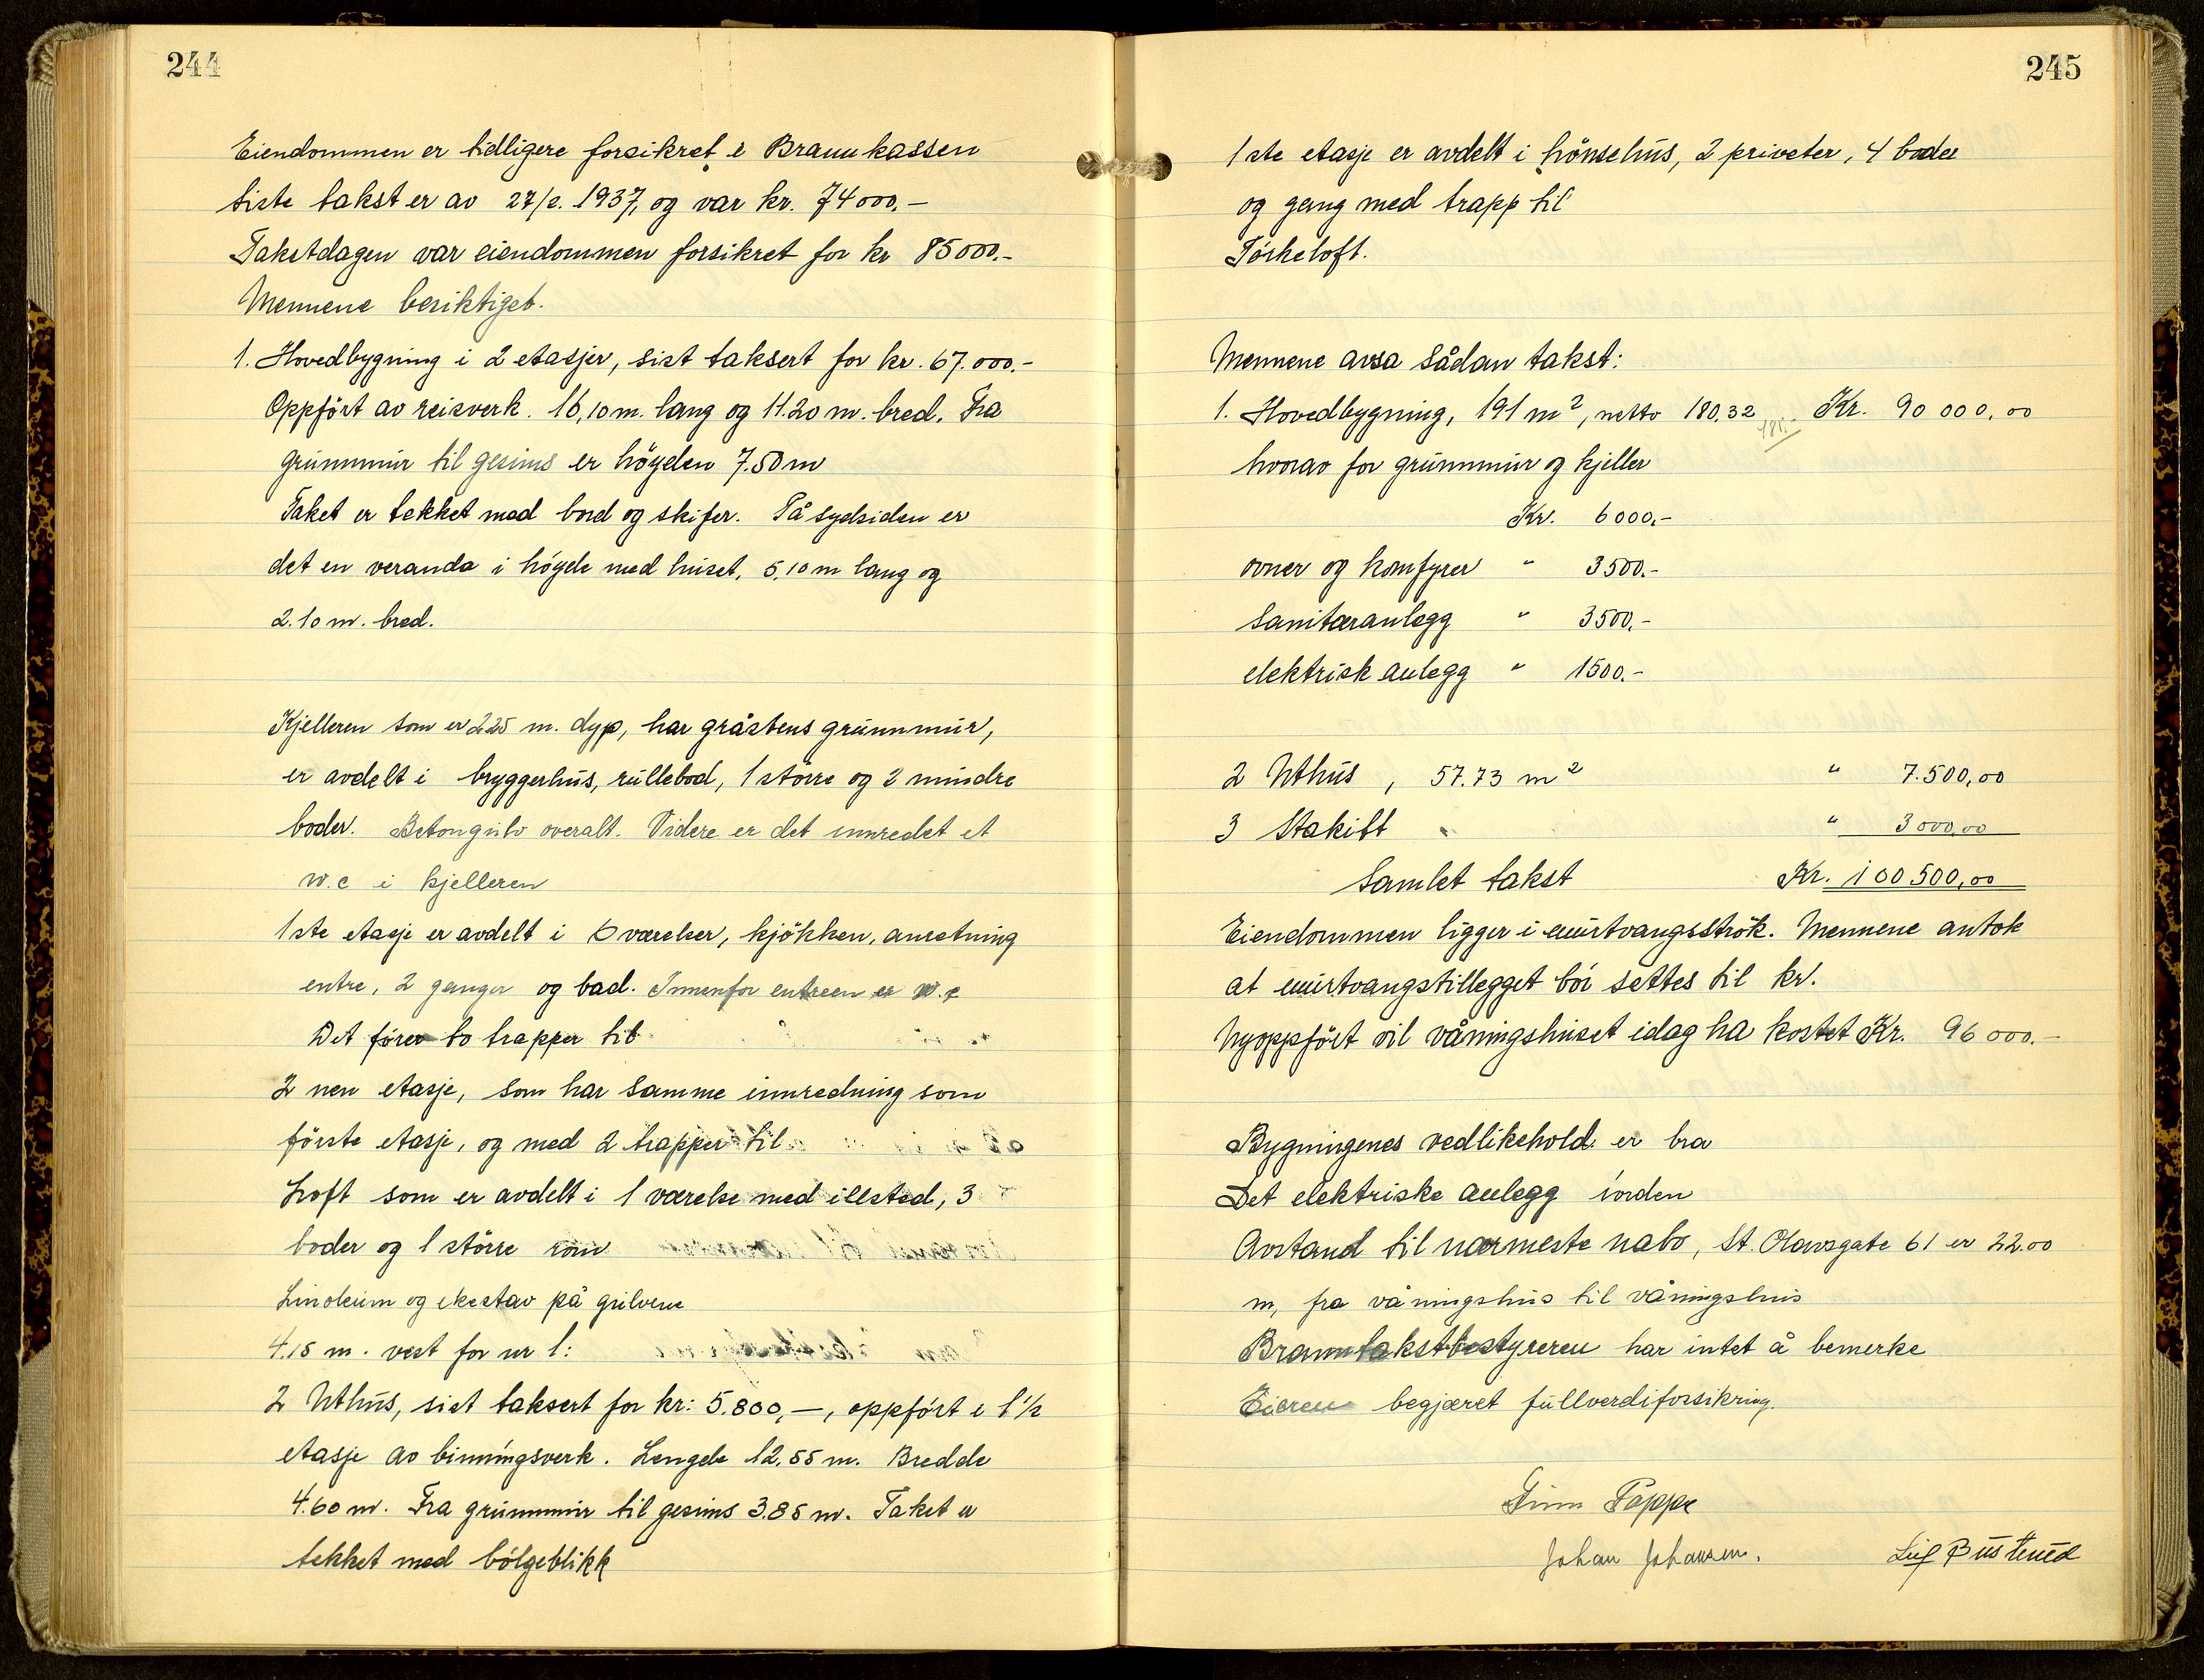 244
Eiendommen er tidligere forsikret i Brannkassen
siste takst er av 27/2. 1937, og var kr. 74000,-
Takstdagen var eiendommen forsikret for kr 85000.-
Mennene besiktiget.
1. Hovedbygning i 2 etasjer, sist taksert for kr. 67.000.-
Oppført av reisverk. 16,10 m. lang og 11.20 m. bred. Fra
grunnmur til gesims er høyden 7.50 m
Taket er tekket med bord og skifer. På sydsiden er
det en veranda i høyde med huset, 5,10 m lang og
2.10 m. bred.
Kjelleren som er 2.25 m. dyp, har gråstens grunnmur,
er avdelt i bryggerhus, rullebod, 1 større og 2 mindre
boder. Betongulv overalt. Videre er det innredet et
w.c i kjelleren
1ste etasje er avdelt i 6 værelser, kjøkken, anretning
entre, 2 ganger og bad. Innenfor entreen er w.c
Det fører to trapper til
2 nen etasje, som har samme innredning som
første etasje, og med 2 trapper til
Loft som er avdelt i 1 værelse med illsted, 3
boder og 1 større rom
Linoleum og ekestav på gulvene
4.15 m. vest for nr 1:
2 Uthus, sist taksert for kr: 5.800,-, oppført i 1 1/2
etasje av binningsverk. Lengde 12.55 m. Bredde
4.60 m. Fra grunnmur til gesims 3.85 m. Taket er
tekket med bølgeblikk
245
1ste etasje er avdelt i hønsehus, 2 priveter, 4 boder
og gang med trapp til
Tørkeloft.
Mennene avsa sådan takst:
1. Hovedbygning, 191 m², netto 180,32 Kr. 90 000,00
181.-
hvorav for grunnmur og kjeller
Kr. 6000,-
ovner og komfyrer " 3500.-
Sanitæranlegg " 3500,-
elektrisk anlegg " 1500.-
2 Uthus, 57.73 m² " 7.500,00
3 Stakitt " 3000,00
Samlet takst Kr. 100500,00
Eiendommen ligger i murtvangsstrøk. Mennene antok
at murtvangstillegget bør settes til kr.
Nyoppført vil våningshuset idag ha kostet Kr. 96000.-
Bygningenes vedlikehold er bra
Det elektriske anlegg iorden
Avstand til nærmeste nabo, St. Olavsgate 61 er 22.00
m, fra våningshus til våningshus
Branntakstbestyreren har intet å bemerke
Eieren begjæret fullverdiforsikring.
Finn Poppe
Johan Johansen.
Leif Busterud